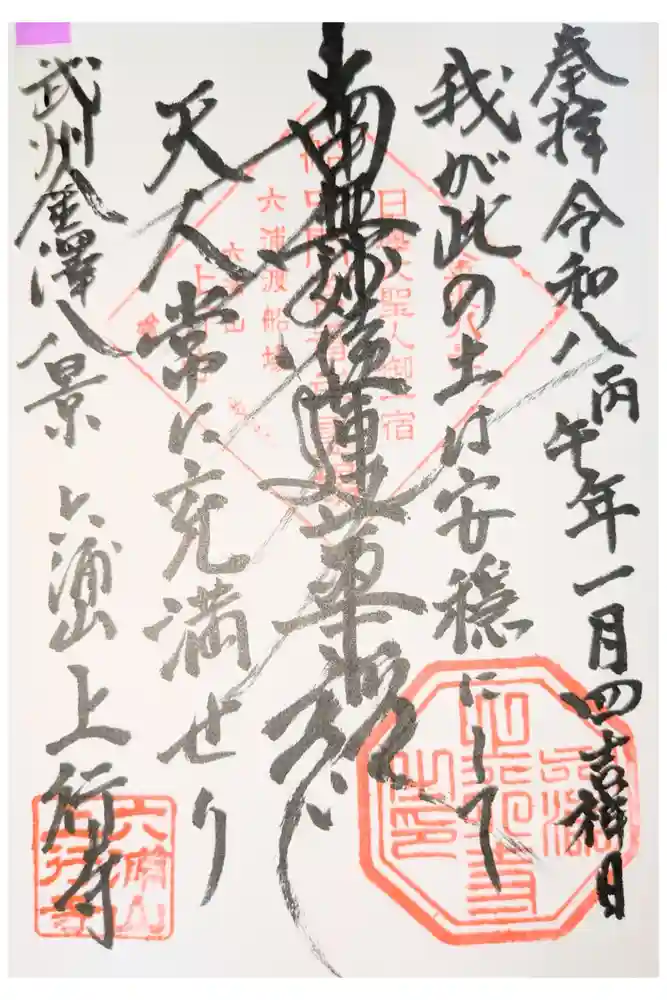 奉拝 令和八丙午年一月四吉祥日
我が此の土は安穏にして
南無妙法蓮華経
天人常に充満せり
武州金澤八景 六浦山 上行寺
日蓮大聖人御一宿
六浦渡船場
六浦山
上行寺
六浦山
上行寺